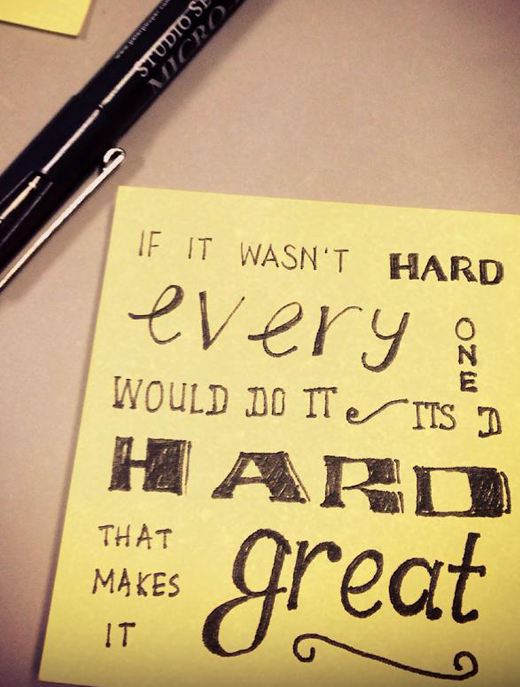 STUDIO SE
MICRO
IF IT WASN'T HARD
every ONE
WOULD DO IT ITS D
HARD
THAT MAKES IT great